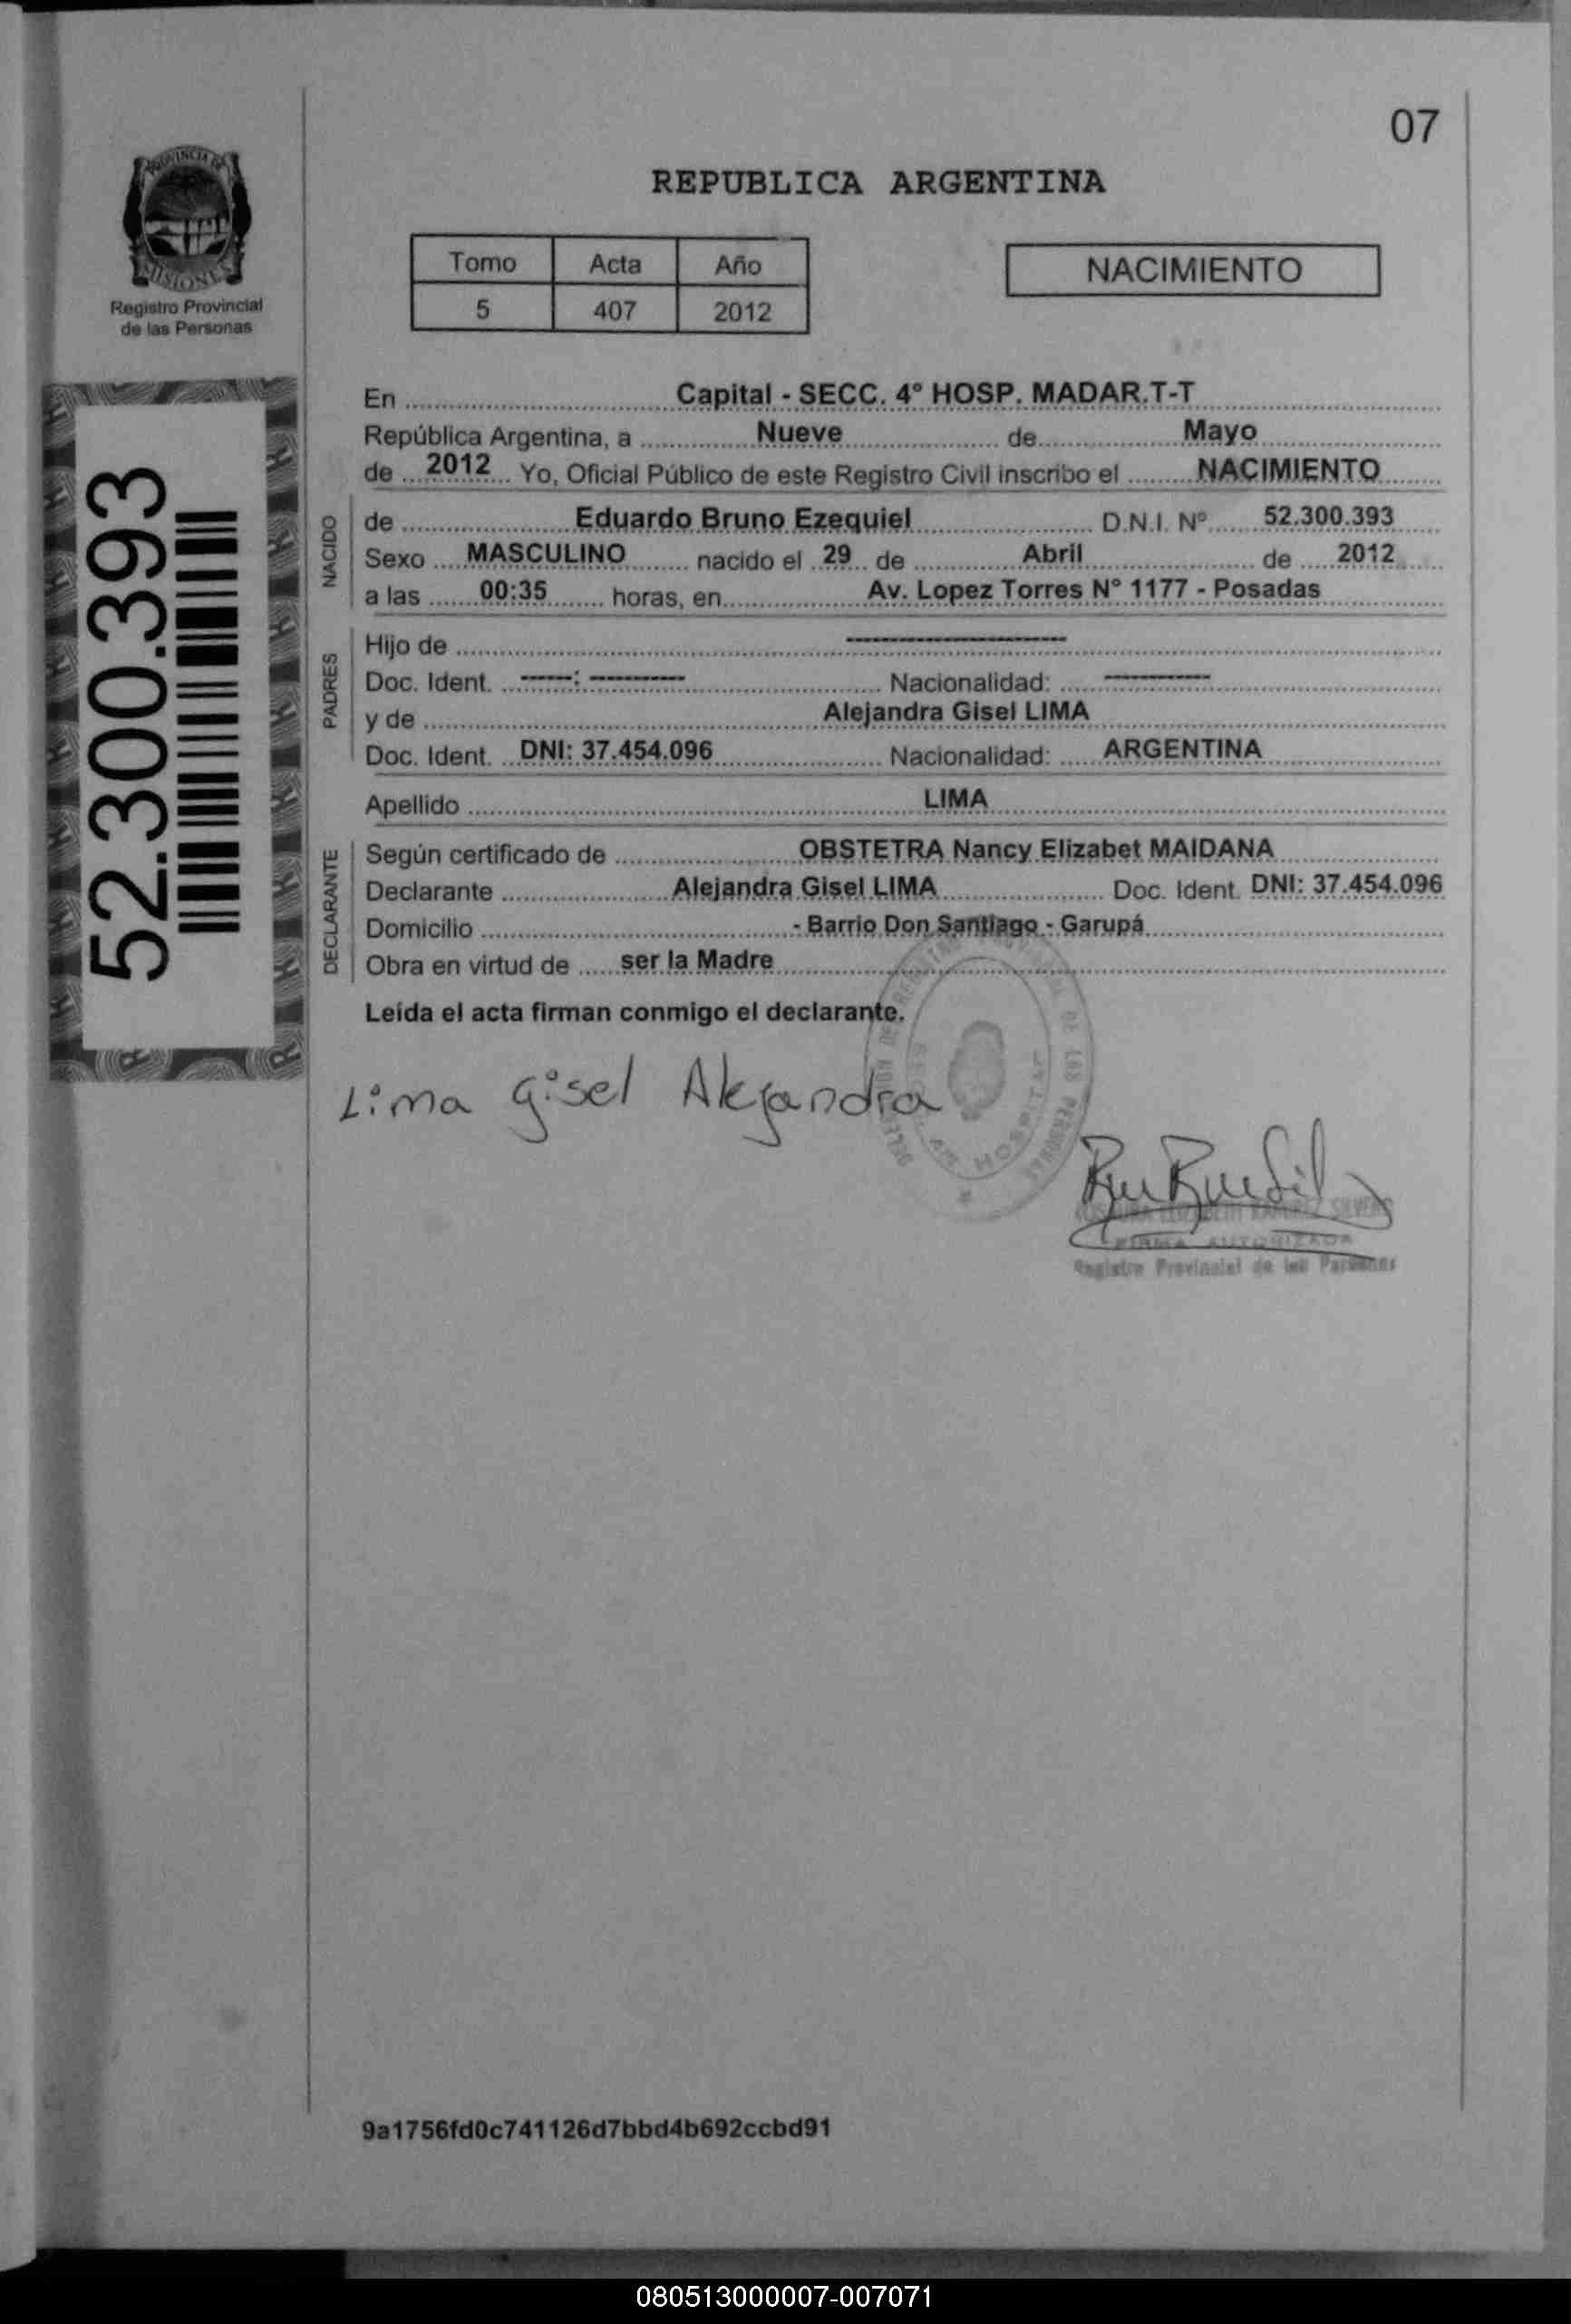 07
PROVINCIA DE
MISIONES
Registro Provincial
de las Personas
REPUBLICA ARGENTINA
Tomo Acta Año
5 407 2012
NACIMIENTO
52.300.393
En Capital - SECC. 4° HOSP. MADAR.T-T
República Argentina, a Nueve de Mayo
de 2012 Yo, Oficial Público de este Registro Civil inscribo el NACIMIENTO
NACIDO
de Eduardo Bruno Ezequiel D.N.I. Nº 52.300.393
Sexo MASCULINO nacido el 29 de Abril de 2012
a las 00:35 horas, en Av. Lopez Torres N° 1177 - Posadas
PADRES
Hijo de --------------------
Doc. Ident. -----: --------- Nacionalidad: ----------
y de Alejandra Gisel LIMA
Doc. Ident. DNI: 37.454.096 Nacionalidad: ARGENTINA
Apellido LIMA
DECLARANTE
Según certificado de OBSTETRA Nancy Elizabet MAIDANA
Declarante Alejandra Gisel LIMA Doc. Ident. DNI: 37.454.096
Domicilio - Barrio Don Santiago - Garupá
Obra en virtud de ser la Madre
Leída el acta firman conmigo el declarante.
Lima Gisel Alejandra
HOSPITAL
DE LAS PERSONAS
RAMIREZ
FIRMA AUTORIZADA
Registro Provincial de las Personas
9a1756fd0c741126d7bbd4b692ccbd91
080513000007-007071